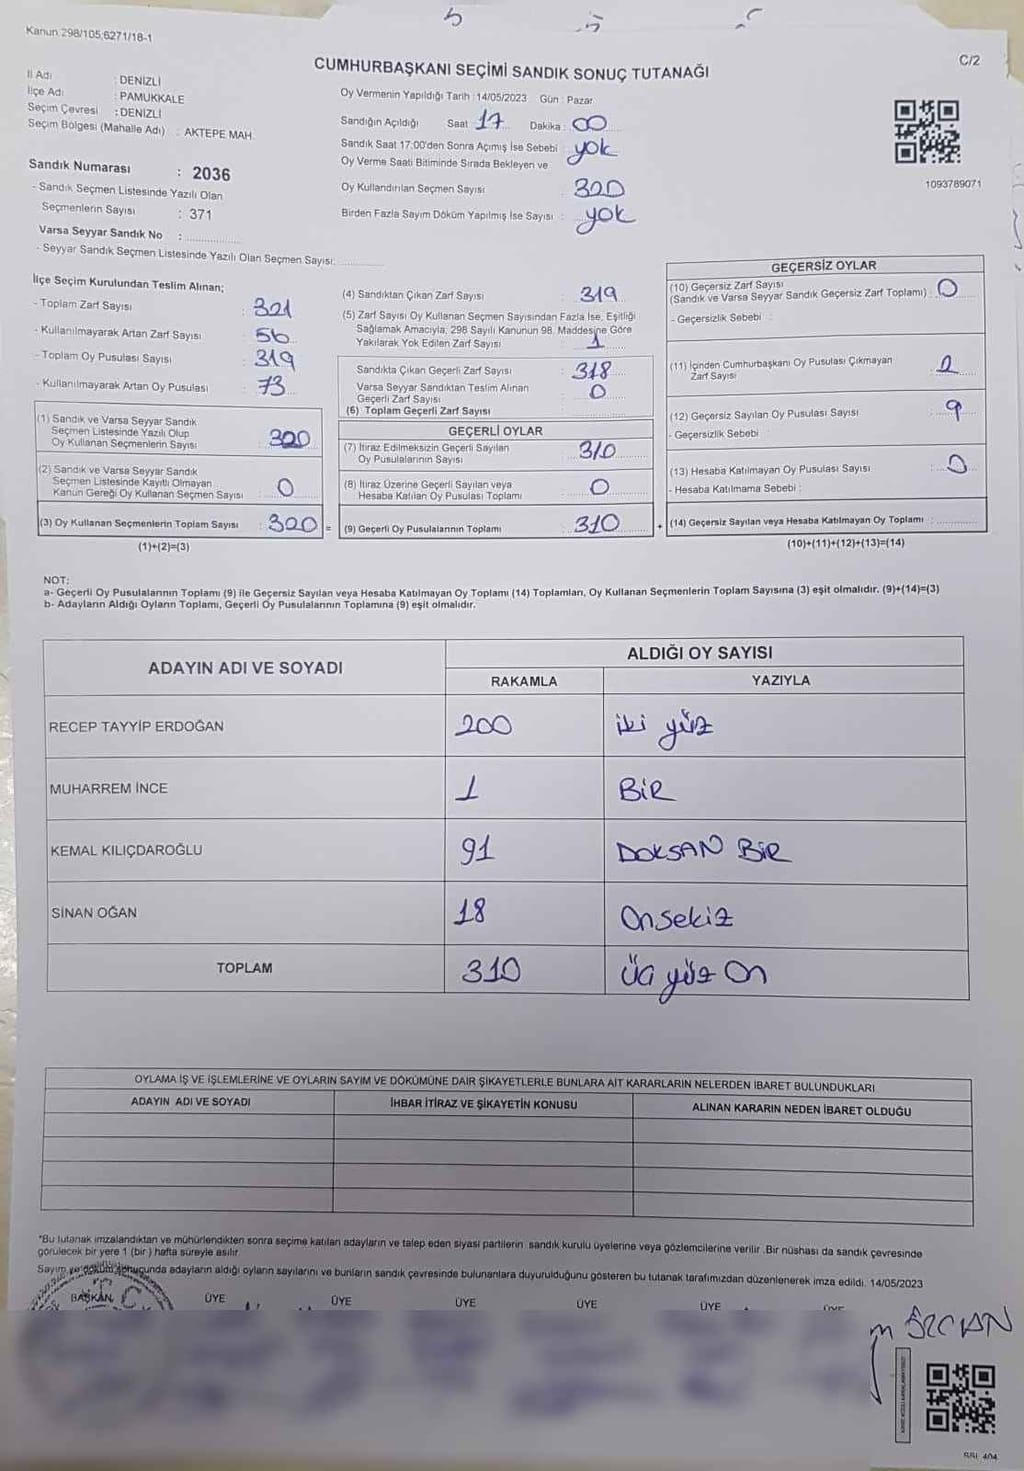 Kanun 298/105;6271/18-1
C/2
CUMHURBAŞKANI SEÇİMİ SANDIK SONUÇ TUTANAĞI
İl Adı : DENİZLİ
İlçe Adı : PAMUKKALE
Seçim Çevresi : DENİZLİ
Seçim Bölgesi (Mahalle Adı) : AKTEPE MAH.
Sandık Numarası : 2036
- Sandık Seçmen Listesinde Yazılı Olan
Seçmenlerin Sayısı : 371
Varsa Seyyar Sandık No :
- Seyyar Sandık Seçmen Listesinde Yazılı Olan Seçmen Sayısı:
Oy Vermenin Yapıldığı Tarih : 14/05/2023 Gün : Pazar
Sandığın Açıldığı Saat 17 Dakika : 00
Sandık Saat 17:00'den Sonra Açımış İse Sebebi : yok
Oy Verme Saati Bitiminde Sırada Bekleyen ve
Oy Kullandırılan Seçmen Sayısı : 320
Birden Fazla Sayım Döküm Yapılmış İse Sayısı : yok
1093789071
İlçe Seçim Kurulundan Teslim Alınan;
- Toplam Zarf Sayısı : 321
- Kullanılmayarak Artan Zarf Sayısı : 56
- Toplam Oy Pusulası Sayısı : 319
- Kullanılmayarak Artan Oy Pusulası : 73
(1) Sandık ve Varsa Seyyar Sandık
Seçmen Listesinde Yazılı Olup
Oy Kullanan Seçmenlerin Sayısı : 320
(2) Sandık ve Varsa Seyyar Sandık
Seçmen Listesinde Kayıtlı Olmayan
Kanun Gereği Oy Kullanan Seçmen Sayısı : 0
(3) Oy Kullanan Seçmenlerin Toplam Sayısı : 320 =
(1)+(2)=(3)
(4) Sandıktan Çıkan Zarf Sayısı : 319
(5) Zarf Sayısı Oy Kullanan Seçmen Sayısından Fazla İse, Eşitliği
Sağlamak Amacıyla, 298 Sayılı Kanunun 98. Maddesine Göre
Yakılarak Yok Edilen Zarf Sayısı : 1
Sandıkta Çıkan Geçerli Zarf Sayısı : 318
Varsa Seyyar Sandıktan Teslim Alınan
Geçerli Zarf Sayısı : 0
(6) Toplam Geçerli Zarf Sayısı
GEÇERLİ OYLAR
(7) İtiraz Edilmeksizin Geçerli Sayılan
Oy Pusulalarının Sayısı : 310
(8) İtiraz Üzerine Geçerli Sayılan veya
Hesaba Katılan Oy Pusulası Toplamı : 0
(9) Geçerli Oy Pusulalarının Toplamı : 310 +
GEÇERSİZ OYLAR
(10) Geçersiz Zarf Sayısı
(Sandık ve Varsa Seyyar Sandık Geçersiz Zarf Toplamı) : 0
- Geçersizlik Sebebi :
(11) İçinden Cumhurbaşkanı Oy Pusulası Çıkmayan
Zarf Sayısı : 2
(12) Geçersiz Sayılan Oy Pusulası Sayısı : 9
- Geçersizlik Sebebi :
(13) Hesaba Katılmayan Oy Pusulası Sayısı : 0
- Hesaba Katılmama Sebebi :
(14) Geçersiz Sayılan veya Hesaba Katılmayan Oy Toplamı :
(10)+(11)+(12)+(13)=(14)
NOT:
a- Geçerli Oy Pusulalarının Toplamı (9) ile Geçersiz Sayılan veya Hesaba Katılmayan Oy Toplamı (14) Toplamları, Oy Kullanan Seçmenlerin Toplam Sayısına (3) eşit olmalıdır. (9)+(14)=(3)
b- Adayların Aldığı Oyların Toplamı, Geçerli Oy Pusulalarının Toplamına (9) eşit olmalıdır.
ADAYIN ADI VE SOYADI ALDIĞI OY SAYISI
RAKAMLA YAZIYLA
RECEP TAYYİP ERDOĞAN 200 iki yüz
MUHARREM İNCE 1 BİR
KEMAL KILIÇDAROĞLU 91 DOKSAN BİR
SİNAN OĞAN 18 Onsekiz
TOPLAM 310 Üç yüz On
OYLAMA İŞ VE İŞLEMLERİNE VE OYLARIN SAYIM VE DÖKÜMÜNE DAİR ŞİKAYETLERLE BUNLARA AİT KARARLARIN NELERDEN İBARET BULUNDUKLARI
ADAYIN ADI VE SOYADI İHBAR İTİRAZ VE ŞİKAYETİN KONUSU ALINAN KARARIN NEDEN İBARET OLDUĞU
*Bu tutanak imzalandıktan ve mühürlendikten sonra seçime katılan adayların ve talep eden siyasi partilerin sandık kurulu üyelerine veya gözlemcilerine verilir. Bir nüshası da sandık çevresinde
görülecek bir yere 1 (bir) hafta süreyle asılır.
Sayım ve döküm sonucunda adayların aldığı oyların sayılarını ve bunların sandık çevresinde bulunanlara duyurulduğunu gösteren bu tutanak tarafımızdan düzenlenerek imza edildi. 14/05/2023
BAŞKAN ÜYE ÜYE ÜYE ÜYE ÜYE ÜYE